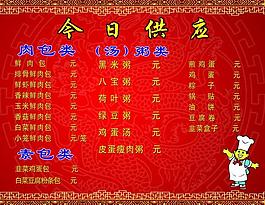 今日供应
肉包类
鲜肉包 元
排骨鲜肉包 元
鲜虾鲜肉包 元
香辣鲜肉包 元
玉米鲜肉包 元
香菇鲜肉包 元
白菜鲜肉包 元
小笼鲜肉包 元/笼
素包类
韭菜鸡蛋包 元
白菜豆腐粉条包 元
（汤）粥类
黑米粥 元
八宝粥 元
荷叶粥 元
绿豆粥 元
鸡蛋汤 元
皮蛋瘦肉粥 元
煎鸡蛋 元
鸡蛋 元
粽子 元
锅贴 元
油饼 元
豆腐卷 元
韭菜盒子 元